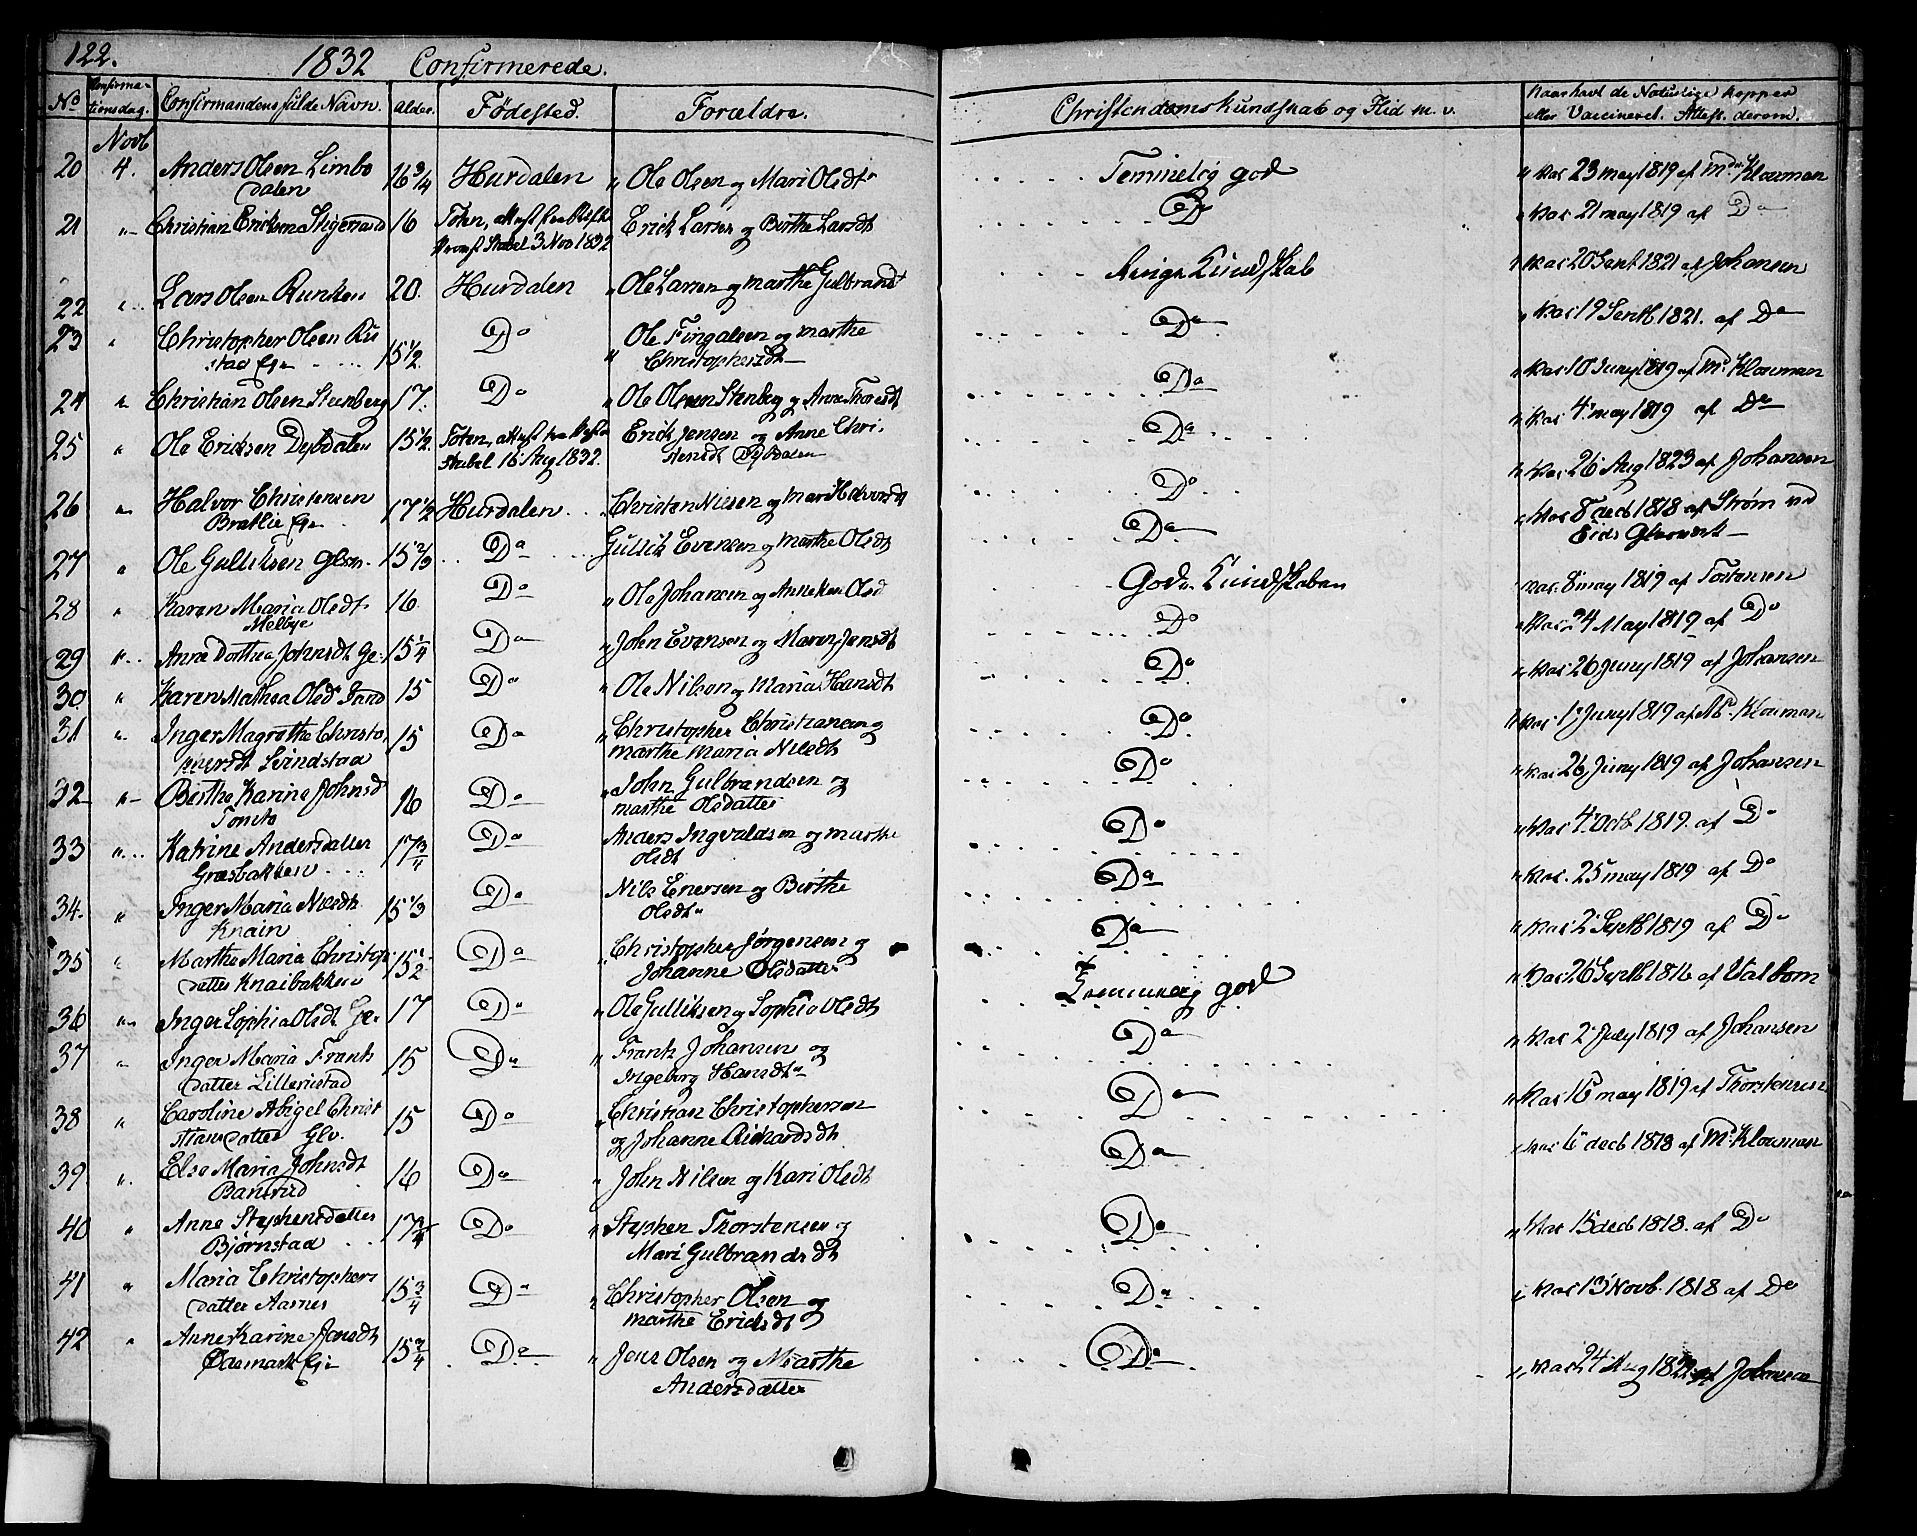 122.
1832 Confirmerede.
No Confirmationsdag. Confirmandens fulde Navn. Alder. Fødested. Forældre. Christendomskundskab og Flid m. v. Naar havt de Naturlige Kopper
eller Vaccineret. Attest. derom.
Novb
20 4. Anders Olsen Limbo 16 3/4 Hurdalen " Ole Olsen og Mari Olsdt Temmelig god " Vac 23 may 1819 af Mdm Klouman
dalen
21 " Christian Ericksen Stigersand 16 Toten, attest fra Erick Larsen og Birthe Larsdt Do " Vac 21 may 1819 af Do
Stabel 3 Nov 1832
22 " Lars Olsen Runken 20 Hurdalen " Ole Larsen og Marthe Gulbrandsdt Ringe Kundskab " Vac 20 Sept 1821 af Johansen
23 " Christopher Olsen Ru 15 1/2 Do " Ole Fingalsen og Marthe Do " Vac 19 Septb 1821. af Do
stad Eje Christophersdt
24 " Christian Olsen Steenberg 17. Do " Ole Olsen Stenberg og Anne Thoresdt Do " Vac 10 Juny 1819 af M. Klouman
25 " Ole Ericksen Dybdalen 15 1/2 Toten, attest fra Erick Jensen og Anne Chri- Do " Vac 4 may 1819 af Do
Stabel 16 Aug 1832. stensdt Dybdalen
26 " Halvor Christensen 17 1/2 Hurdalen Christen Nielsen og Mari Halvorsdt Do " Vac 26 Aug 1823 af Johansen
Bratlie Eje
27 " Ole Gulliksen Glsm. 15 2/3 Do Gullik Evensen og Marthe Olsdt Do " Vac 8 decb 1818 af Strøm ved
Eids Glasverk
28 " Karen Maria Olsdt 16. Do " Ole Johansen og Anneken Olsd Gode Kundskaber Vac. 8 may 1819 af Tostensen
Melbye
29 " Anne Dorthea Johnsdt Ge 15 1/4 Do " John Evensen og Maren Jensdt Do " Vac 24 May 1819 af Do
30. " Karen Mathea Olsd Sand 15 Do " Ole Nilsen og Maria Hansdt Do " Vac 26 Juny 1819 af Johansen
31 " Inger Magrethe Christo 15 Do " Christopher Christiansen og Do " Vac 1 Juny 1819 af M. Klouman
phersdt Svindstad Marthe Maria Nilsdt
32 " Birthe Karine Johnsd 16 Do " John Gulbrandsen og Do " Vac 26 Juny 1819 af Johansen
Marthe Olsdatter
33 " Katrine Andersdatter 17 3/4 Do Anders Ingvaldsen og Marthe Do " Vac 4 Octb 1819. af Do
Græsbakken Olsdt
34. " Inger Maria Nilsdt 15 1/3 Do Nils Enersen og Birthe Do " Vac. 25 may 1819 af Do
Knain Olsdt
35 " Marthe Maria Christop 15 1/2 Do " Christopher Jørgensen og Do " Vac 2 Septb 1819 af Do
datter Knaibakken Johanne Olsdatter
36 " Inger Sophia Olsdt Ge 17 Do " Ole Gulliksen og Sophia Olsdt Temmelig god " Vac 26 Septb 1816 af Valbom
37 " Inger Maria Frants 15 Do " Frants Johansen og Do " Vac 2 July 1819 af Johansen
datter Lillerustad Ingeborg Hansdt
38 " Caroline Abigel Christ 15 Do " Christian Christophersen Do " Vac 16 may 1819 af Thorstensen
iansdatter Glv. og Johanne Richardsdt
39 " Else Maria Johnsdt 16 Do " John Nilsen og Kari Olsdt Do " Vac 6 decb 1818 af M. Klouman
Bansrud
40 " Anne Stephensdatter 17 3/4 Do " Stephen Thorstensen og Do " Vac 15 decb 1818. af Do
Bjørnstad Mari Gulbrandsdt
41 " Maria Christophers 15 3/4 Do " Christopher Olsen og Do " Vac 13 Novb. 1818 af Do
datter Aarnes Marthe Ericksdt
42 " Anne Karine Jensdt 15 3/4 Do " Jens Olsen og Marthe Do " Vac 24 Aug 1822 af Johansen
Ødemark Eje Andersdatter